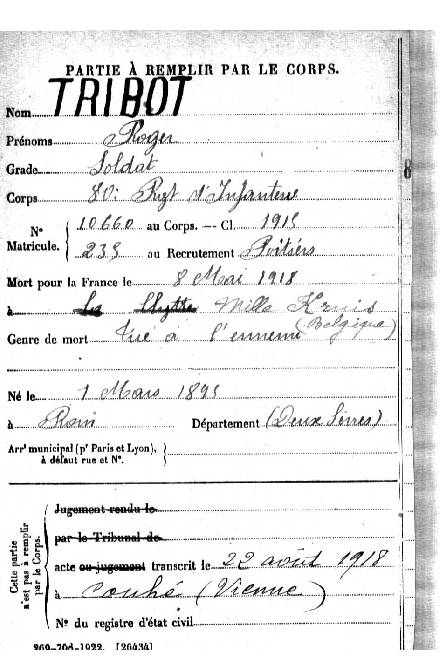 PARTIE À REMPLIR PAR LE CORPS.
Nom TRIBOT
Prénoms Roger
Grade Soldat
Corps 80e Rgt d'Infanterie
N° Matricule. { 10660 au Corps. — Cl. 1915
235 au Recrutement Poitiers
Mort pour la France le 8 Mai 1918
à La Clytte Mille Kruis
(Belgique)
Genre de mort Tué à l'ennemi
Né le 1 Mars 1895
à Rom Département (Deux Sèvres)
Arrt municipal (pr Paris et Lyon),
à défaut rue et N°.
Cette partie
n'est pas à remplir
par le Corps.
Jugement rendu le
par le Tribunal de
acte ou jugement transcrit le 22 août 1918
à Couhé (Vienne)
N° du registre d'état civil
269-708-1922. [26434]